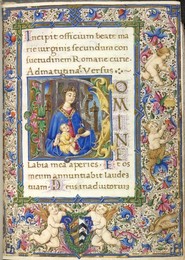 Incipit officium beate ma
rie virginis secundum con
suetudinem Romane curie.
Ad matutinas. Versus.
DOMINE
Labia mea aperies. Et os
meum annuntiabit laudes
tuam. Deus in adiutoriu